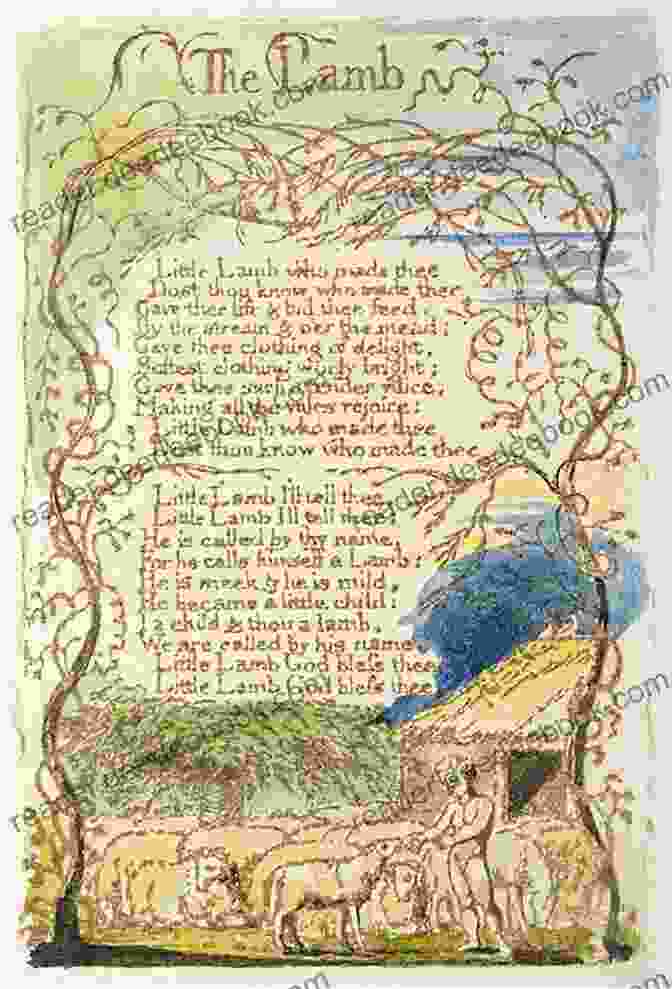 The Lamb
Little Lamb who made thee
Dost thou know who made thee
Gave thee life & bid thee feed.
By the stream & o'er the mead;
Gave thee clothing of delight,
Softest clothing wooly bright;
Gave thee such a tender voice,
Making all the vales rejoice:
Little Lamb who made thee
Dost thou know who made thee
Little Lamb I'll tell thee,
Little Lamb I'll tell thee;
He is called by thy name,
For he calls himself a Lamb:
He is meek & he is mild,
He became a little child:
I a child & thou a lamb,
We are called by his name.
Little Lamb God bless thee
Little Lamb God bless thee
reader.deedeebook.com
reader.deedeebook.com
reader.deedeebook.com
reader.deedeebook.com
reader.deedeebook.com
reader.deedeebook.com